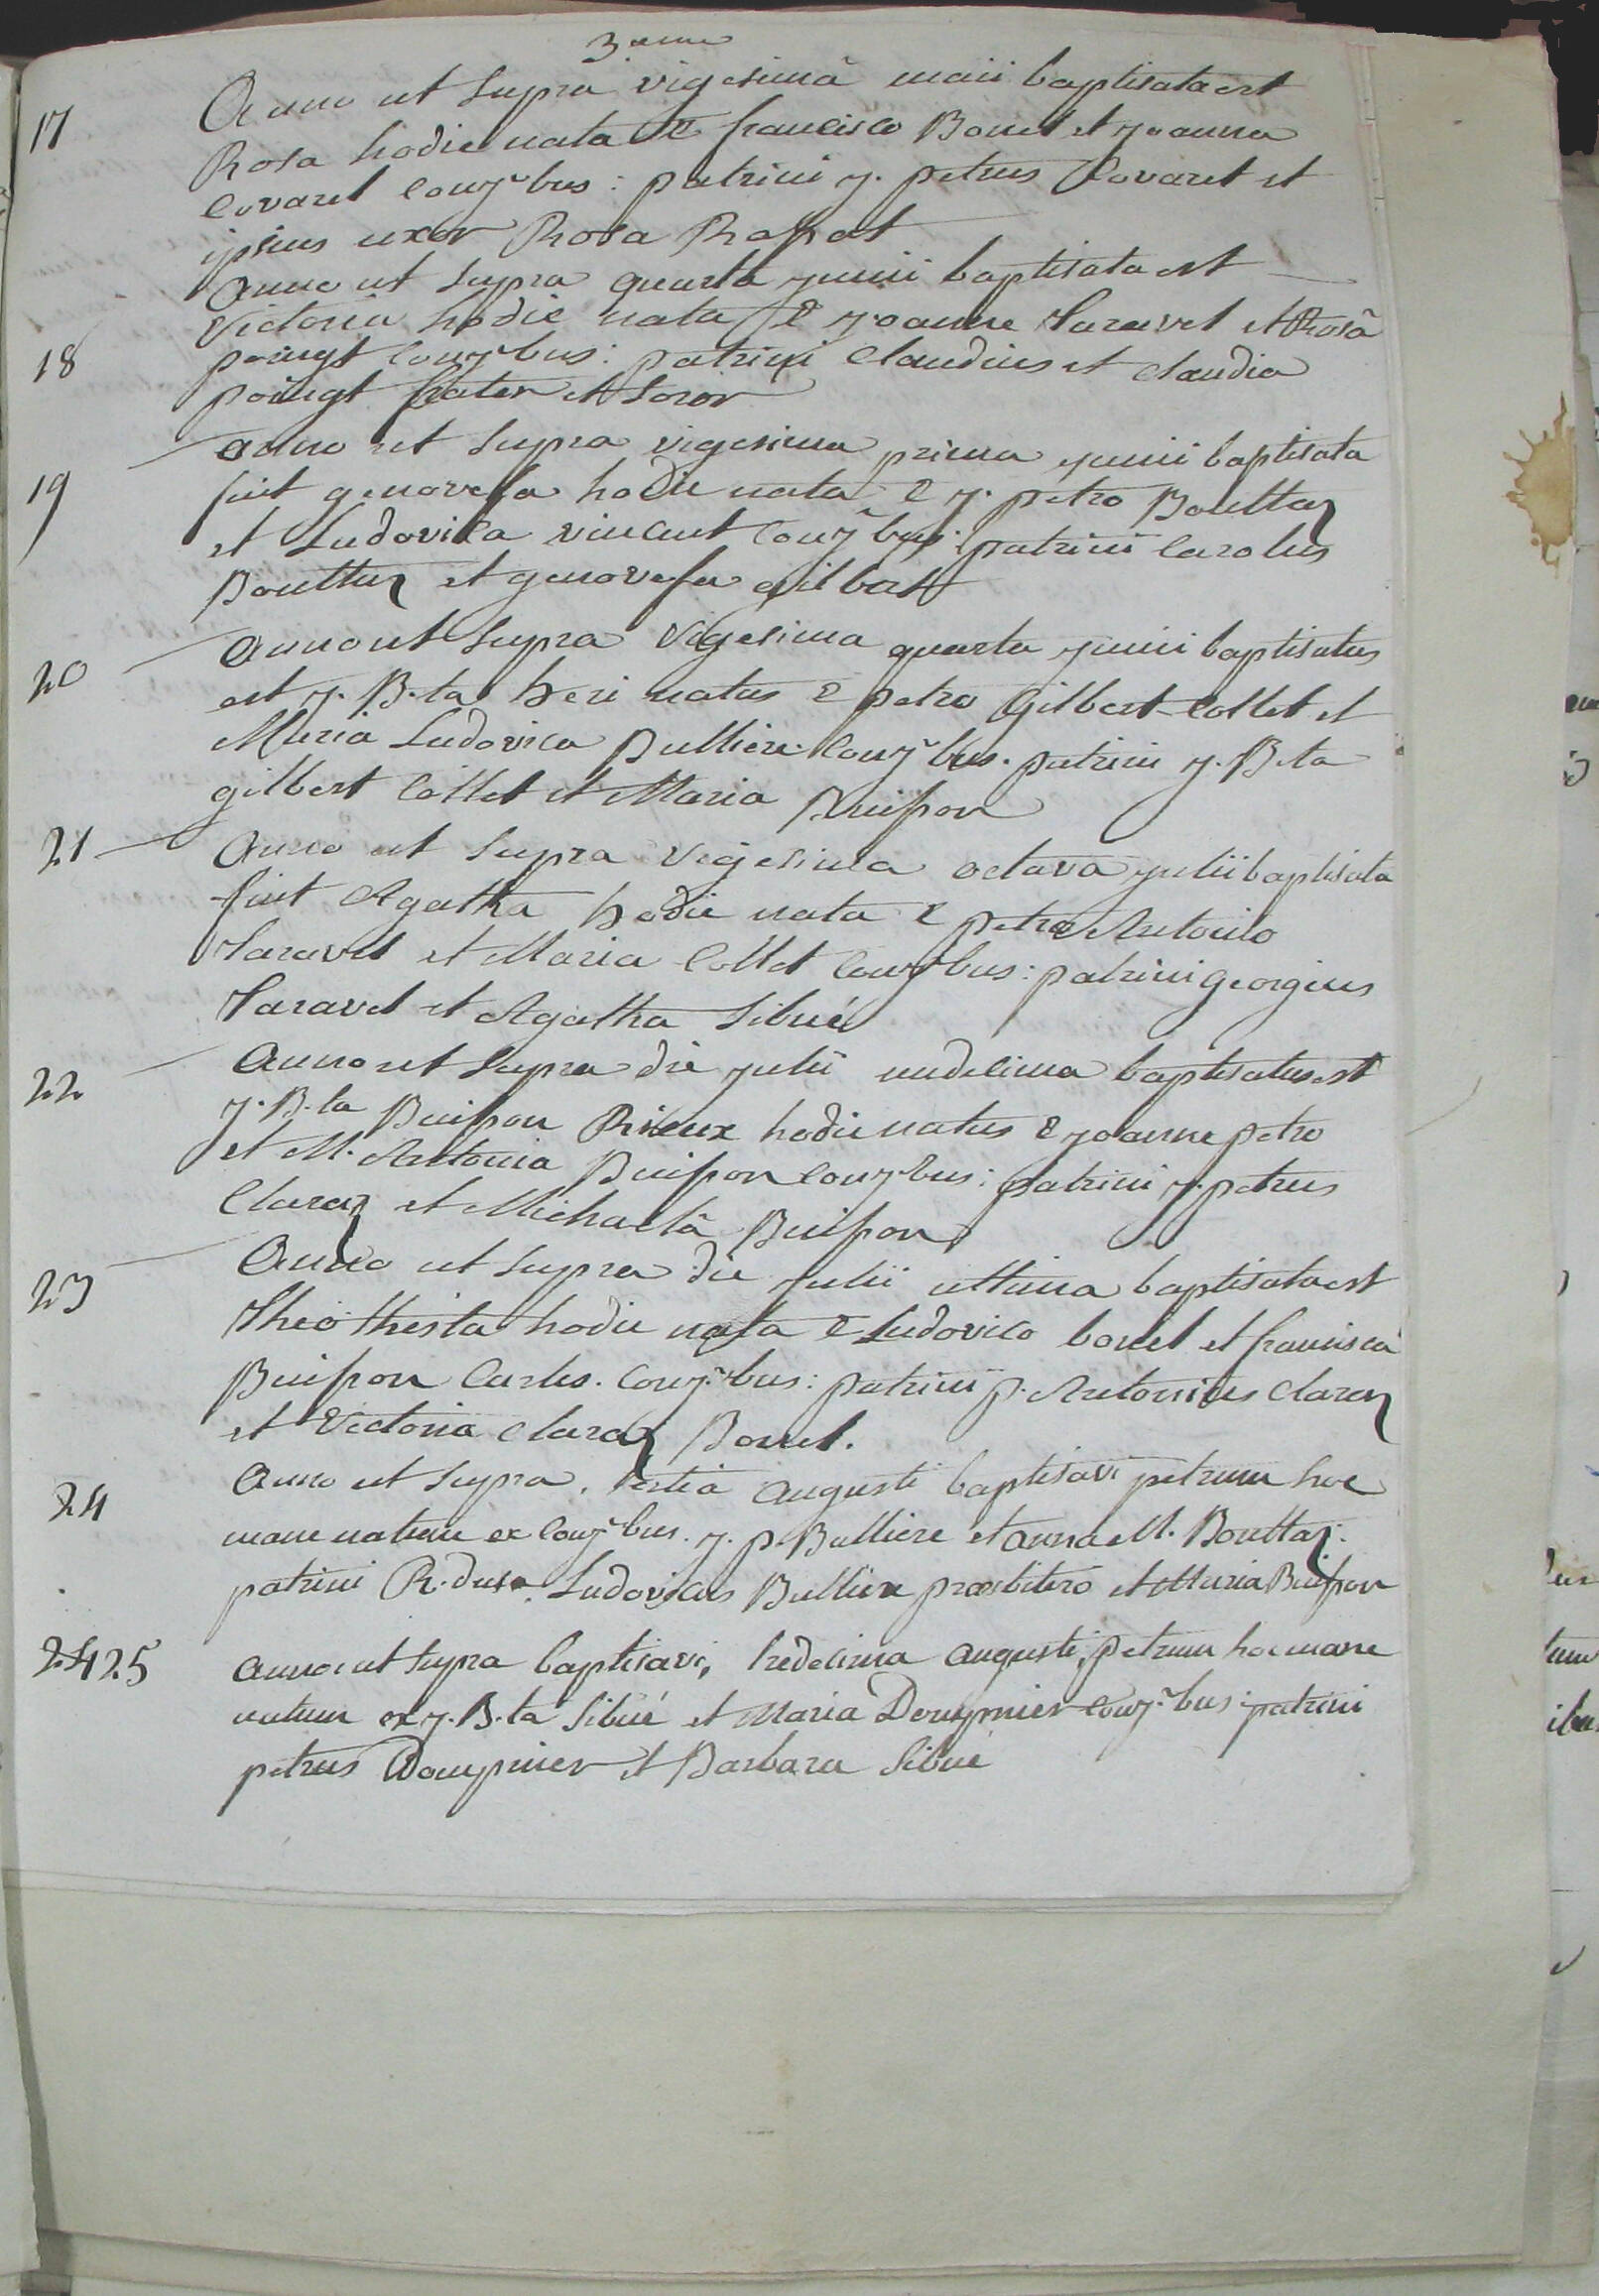 3eme
17 Anno ut supra vigesimâ maii baptisata est
Rosa hodie nata è francisco Bonel et joanna
Covarel conj~bus: patrini j. petrus Covaret et
ipsius uxor Rosa
anno ut supra quarta junii baptisata est
Victoria hodie nata è joanne Taravel et Rosâ
18 poingt conj~bus: patrini Claudius et Claudia
poingt frater et soror
anno ut supra vigesima prima junii baptisata
19 fuit genovefa hodie nata è j. petro Bouttaz
et Ludovica vincent conj~bus: patrini Carolus
Bouttaz et genovefa gilbert
20 anno ut supra vigesima quarta junii baptisatus
est j. B.ta heri natus è petro Gilbert-Collet et
Maria Ludovica Bulliere conj~bus. patrini j. B.ta
gilbert Collet et Maria Buisson
21 anno ut supra vigesima octava julii baptisata
fuit Agatha hodie nata è petro Antonio
Taravel et Maria Collet conj~bus: patrini georgius
Taravel et Agatha Sibué
22 anno ut supra die julii undecima baptisatus est
j. B.ta Buisson Rieux hodie natus è joanne petro
et M. Antonia Buisson conj~bus: patrini j. petrus
Claraz et Michaelâ Buisson
23 anno ut supra die julii ultima baptisata est
Théothista hodie nata è Ludovico bonel et franciscâ
Buisson Carles. conj~bus: patrini p. Antonius Claraz
et Victoria Claraz Bonel.
24 anno ut supra, tertia augusti baptisavi petrum hoc
mane natum ex conj~bus. j. p. Bulliere et anna M. Bouttaz:
patrini R.dus Ludovicus Bulliere et Maria Buisson
24 25 anno ut supra baptisavi, tredecima augusti, petrum hoc mane
natum ex j. B.ta Sibué et Maria Doupmier conj~bus: patrini
petrus Doupmier et Barbara Sibué